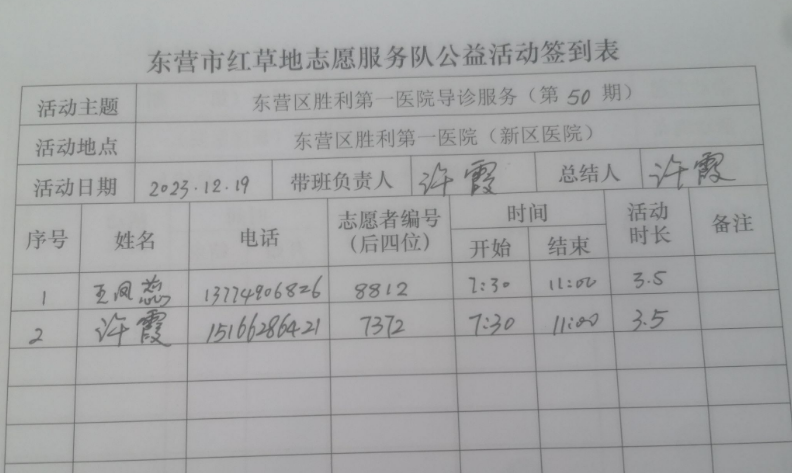 东营市红草地志愿服务队公益活动签到表
活动主题 东营区胜利第一医院导诊服务（第 50 期）
活动地点 东营区胜利第一医院（新区医院）
活动日期 2023.12.19 带班负责人 许霞 总结人 许霞
序号 姓名 电话 志愿者编号（后四位） 时间 开始 结束 活动时长 备注
1 王凤蕊 13774906826 8812 7:30 11:00 3.5
2 许霞 15166286421 7372 7:30 11:00 3.5